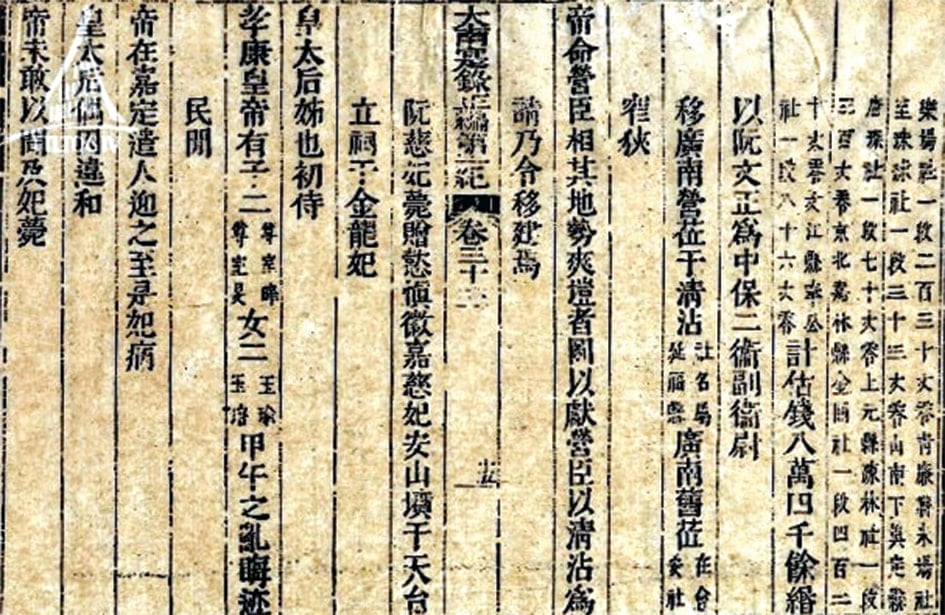 樂場社一段二百三十丈零青廉縣永場社
社一段三十三丈零山南下真定縣
唐社一段七十丈零上元縣林社一段
三百丈零京北嘉林縣金關社一段四百二
十丈零文江縣
社一段八十六丈零
計估錢八萬四千餘緡
以阮文正爲中保二衛副衛尉
移廣南營莅于清沾社名屬延福縣廣南舊莅在會安社
窄狹
帝命營臣相其地勢爽塏者圖以獻營臣以清沾爲
請乃令移建焉
大南寔錄正編第二紀 卷三十二 十五
阮慈妃薨贈慜慎徽嘉慈妃安山墳于天台
立祠于金龍妃
皇太后姊也初侍
孝康皇帝有子二尊室晦尊室旻女二玉瑜玉甲午之亂晦迹
民間
帝在嘉定遣人迎之至是妃病
皇太后偶因違和
帝未敢以聞及妃薨